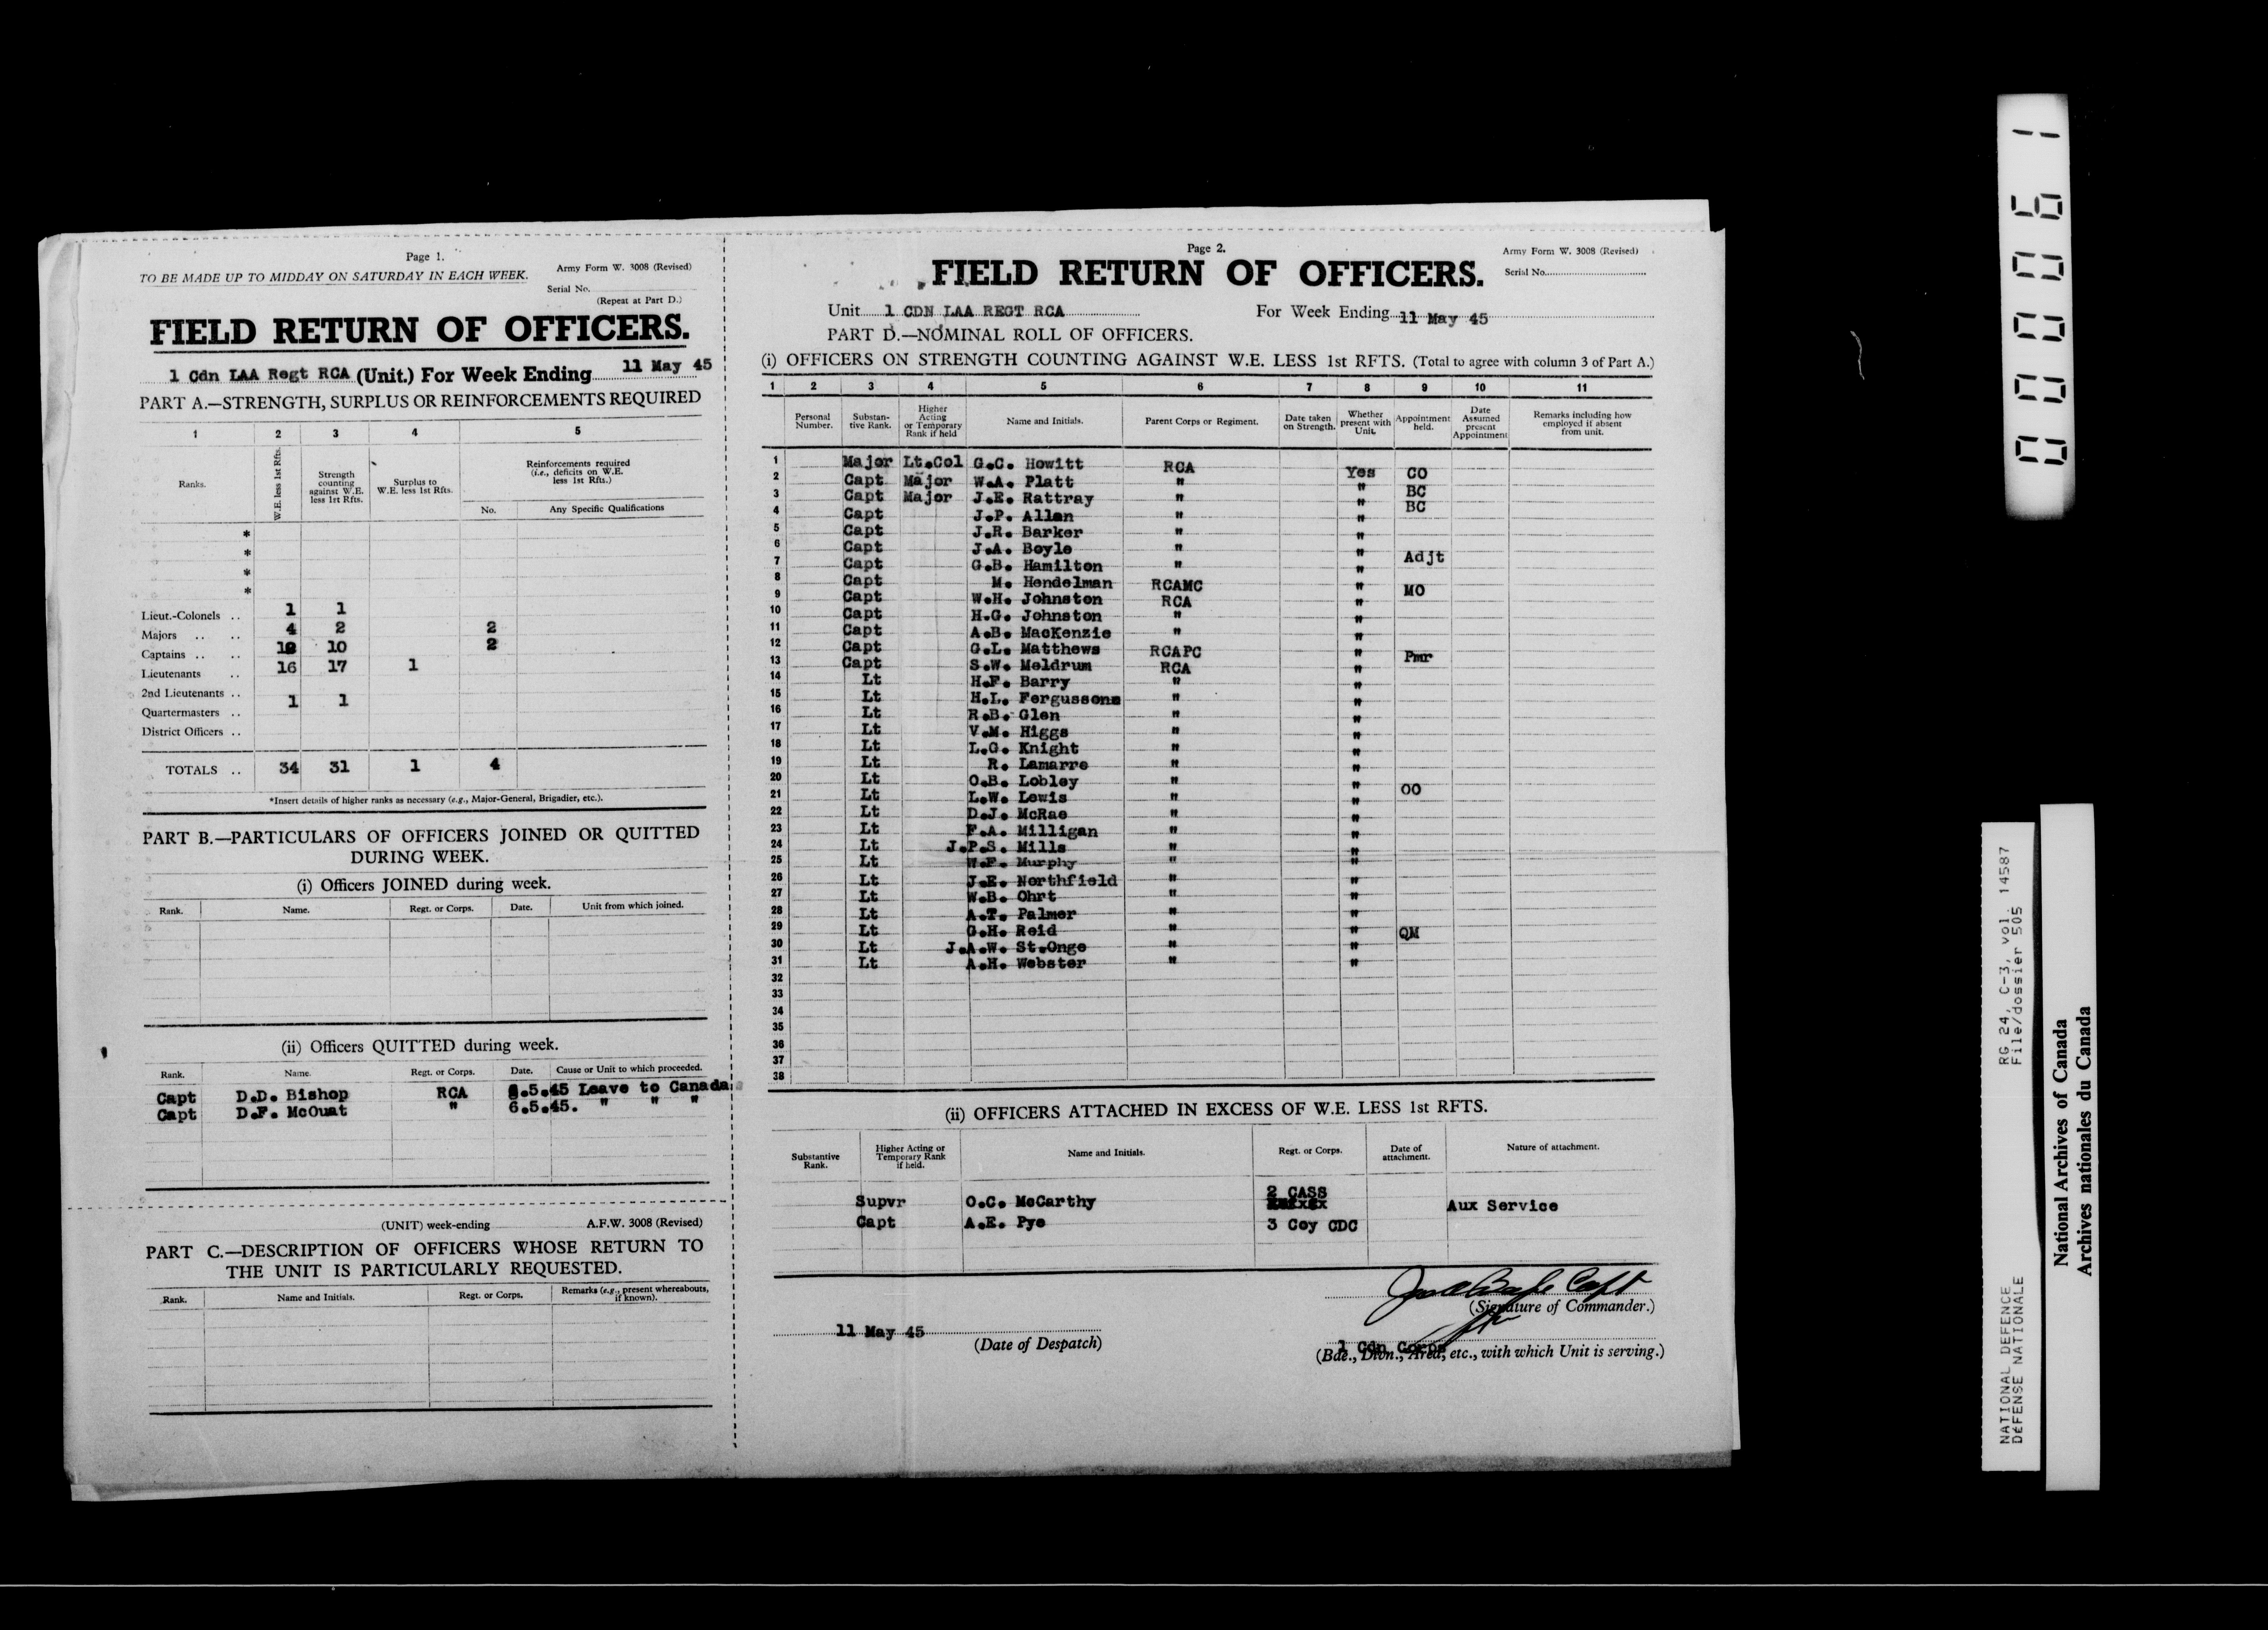 Page 1.
TO BE MADE UP TO MIDDAY ON SATURDAY IN EACH WEEK.
Army Form W. 3008 (Revised)
Serial No.
(Repeat at Part D.)
FIELD RETURN OF OFFICERS.
1 Cdn LAA Regt RCA (Unit.) For Week Ending 11 May 45
PART A.—STRENGTH, SURPLUS OR REINFORCEMENTS REQUIRED
1 2 3 4 5
Ranks. W.E. less 1st Rfts. Strength counting against W.E. less 1st Rfts. Surplus to W.E. less 1st Rfts. Reinforcements required (i.e., deficits on W.E. less 1st Rfts.)
No. Any Specific Qualifications
*
*
*
*
Lieut.-Colonels .. 1 1
Majors .. .. 4 2 2
Captains .. .. 12 10 2
Lieutenants .. 16 17 1
2nd Lieutenants ..
Quartermasters .. 1 1
District Officers ..
TOTALS .. 34 31 1 4
*Insert details of higher ranks as necessary (e.g., Major-General, Brigadier, etc.).
PART B.—PARTICULARS OF OFFICERS JOINED OR QUITTED
DURING WEEK.
(i) Officers JOINED during week.
Rank. Name. Regt. or Corps. Date. Unit from which joined.
(ii) Officers QUITTED during week.
Rank. Name. Regt. or Corps. Date. Cause or Unit to which proceeded.
Capt D.D. Bishop RCA .5.45 Leave to Canada
Capt D.F. McOuat " 6.5.45. " " "
(UNIT) week-ending A.F.W. 3008 (Revised)
PART C.—DESCRIPTION OF OFFICERS WHOSE RETURN TO
THE UNIT IS PARTICULARLY REQUESTED.
Rank. Name and Initials. Regt. or Corps. Remarks (e.g., present whereabouts, if known).
Page 2.
Army Form W. 3008 (Revised)
FIELD RETURN OF OFFICERS.
Serial No.
Unit 1 CDN LAA REGT RCA For Week Ending 11 May 45
PART D.—NOMINAL ROLL OF OFFICERS.
(i) OFFICERS ON STRENGTH COUNTING AGAINST W.E. LESS 1st RFTS. (Total to agree with column 3 of Part A.)
1 2 3 4 5 6 7 8 9 10 11
Personal Number. Substantive Rank. Higher Acting or Temporary Rank if held Name and Initials. Parent Corps or Regiment. Date taken on Strength. Whether present with Unit. Appointment held. Date Assumed present Appointment Remarks including how employed if absent from unit.
1 Major Lt.Col G.C. Howitt RCA Yes CO
2 Capt Major W.A. Platt " " BC
3 Capt Major J.E. Rattray " " BC
4 Capt J.P. Allan " "
5 Capt J.R. Barker " "
6 Capt J.A. Boyle " " Adjt
7 Capt G.B. Hamilton " "
8 Capt M. Hendelman RCAMC " MO
9 Capt W.H. Johnston RCA "
10 Capt H.G. Johnston " "
11 Capt A.B. MacKenzie " "
12 Capt G.L. Matthews RCAPC " Pmr
13 Capt S.W. Meldrum RCA "
14 Lt H.F. Barry " "
15 Lt H.L. Fergusson " "
16 Lt R.B. Glen " "
17 Lt V.M. Higgs " "
18 Lt L.G. Knight " "
19 Lt R. Lamarre " "
20 Lt O.B. Lobley " " OO
21 Lt L.W. Lewis " "
22 Lt D.J. McRae " "
23 Lt F.A. Milligan " "
24 Lt J.P.S. Mills " "
25 Lt W.F. Murphy " "
26 Lt J.E. Northfield " "
27 Lt W.B. Ohrt " "
28 Lt A.T. Palmer " "
29 Lt G.H. Reid " " QM
30 Lt J.A.W. St.Onge " "
31 Lt A.H. Webster " "
32
33
34
35
36
37
38
(ii) OFFICERS ATTACHED IN EXCESS OF W.E. LESS 1st RFTS.
Substantive Rank. Higher Acting or Temporary Rank if held. Name and Initials. Regt. or Corps. Date of attachment. Nature of attachment.
Supvr O.C. McCarthy 2 CASS Aux Service
Capt A.E. Pye 3 Coy CDC
Capt
(Signature of Commander.)
11 May 45
(Date of Despatch)
1 Cdn Corps
(Bde., Divn., Area, etc., with which Unit is serving.)
0000061
RG 24, C-3, vol. 14587
File/dossier 505
NATIONAL DEFENCE
DÉFENSE NATIONALE
National Archives of Canada
Archives nationales du Canada